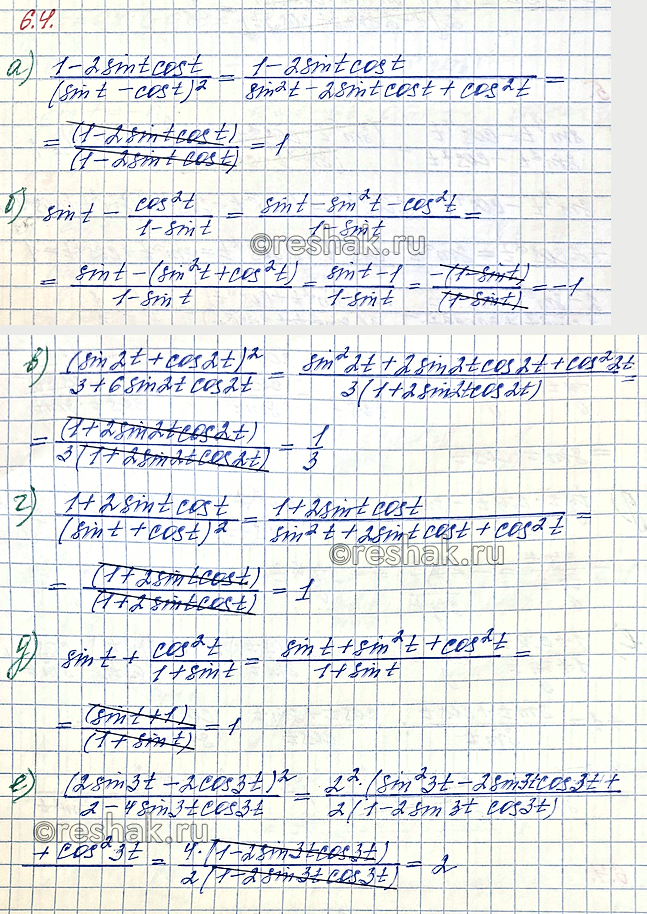 6.4.
а) (1-2sint cost)/(sint - cost)² = (1-2sint cost)/(sin²t - 2sint cost + cos²t) =
= (1-2sint cost)/(1-2sint cost) = 1
б) sint - cos²t/(1-sint) = (sint - sin²t - cos²t)/(1-sint) =
©reshak.ru
= (sint - (sin²t + cos²t))/(1-sint) = (sint - 1)/(1-sint) = -(1-sint)/(1-sint) = -1
в) (sin2t + cos2t)²/(3+6sin2t cos2t) = (sin²2t + 2sin2t cos2t + cos²2t)/(3(1+2sin2t cos2t)) =
= (1+2sin2t cos2t)/(3(1+2sin2t cos2t)) = 1/3
г) (1+2sint cost)/(sint + cost)² = (1+2sint cost)/(sin²t + 2sint cost + cos²t) =
©reshak.ru
= (1+2sint cost)/(1+2sint cost) = 1
д) sint + cos²t/(1+sint) = (sint + sin²t + cos²t)/(1+sint) =
= (sint+1)/(1+sint) = 1
е) (2sin3t - 2cos3t)²/(2-4sin3t cos3t) = 2²·(sin²3t - 2sin3t cos3t +/2(1-2sin3t cos3t)
©reshak.ru
+ cos²3t = 4·(1-2sin3t cos3t)/(2(1-2sin3t cos3t)) = 2